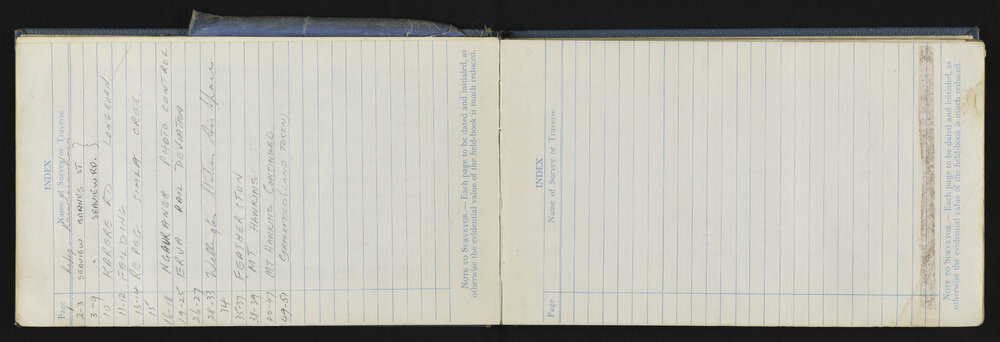 INDEX
Page Name of Survey or Traverse
1
2-3 SEAVIEW BARNES ST }
3-9 " SEAVIEW RD. }
10 KARERE RD LONGBURN
11-12 FEILDING
13-14 RE PEG SIMLA CRES.
15
16-18 NGAURANGA PHOTO CONTROL
19-25 ERUA RAIL DEVIATION
26-27
28-33 Wellington Station Air Space
34
35-37 FEATHERSTON
38-39 MT HAWKINS
40-47 MT HAWKINS CONTINUED
49-51 (LAND TAKEN)
NOTE TO SURVEYOR.— Each page to be dated and initialed, as
otherwise the evidential value of the field-book is much reduced.
INDEX
Page Name of Survey or Traverse
NOTE TO SURVEYOR.— Each page to be dated and initialed, as
otherwise the evidential value of the field-book is much reduced.